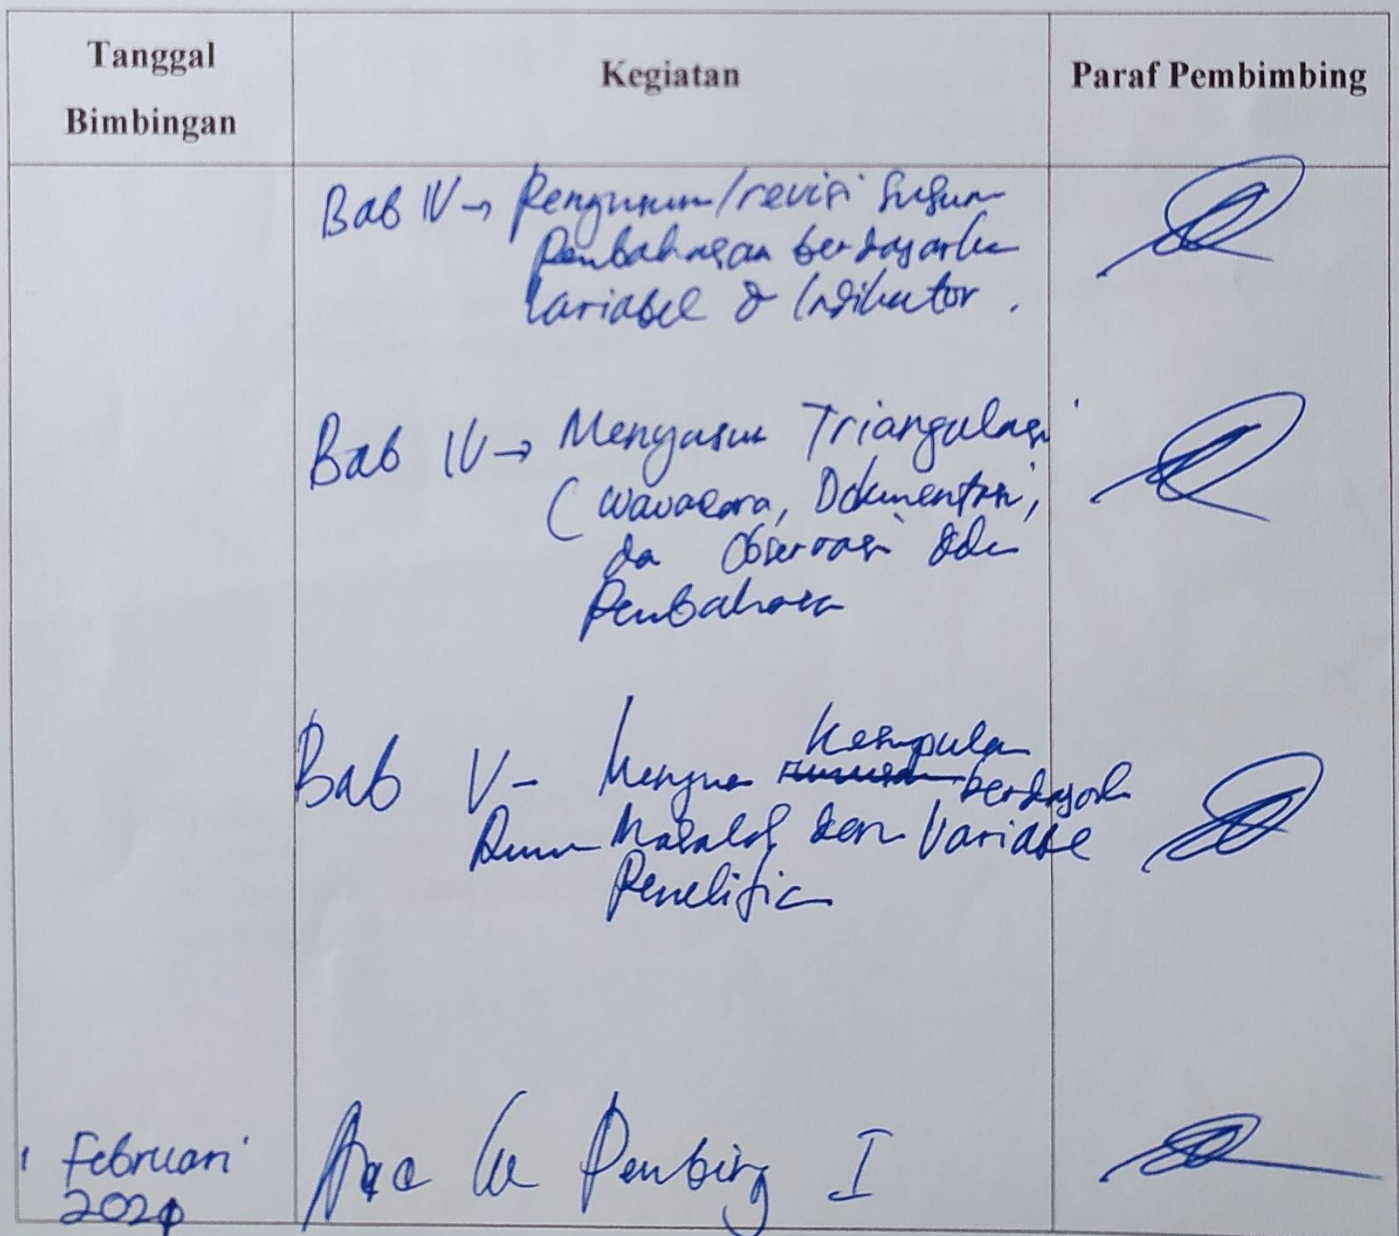 Tanggal
Bimbingan
Kegiatan
Paraf Pembimbing
Bab IV → Pengusun/revisi susun
Pembahasan berdasarkan
Variabel & Indikator.
Bab IV → Menyusun Triangulasi
(Wawacara, Dokumentasi,
da Observasi
Pembahasan
Kesimpulan
Bab V - berdasark
Masalah dan Variabel
Penelitian
1 Februari
2024
Acc Ke Pembimbing I